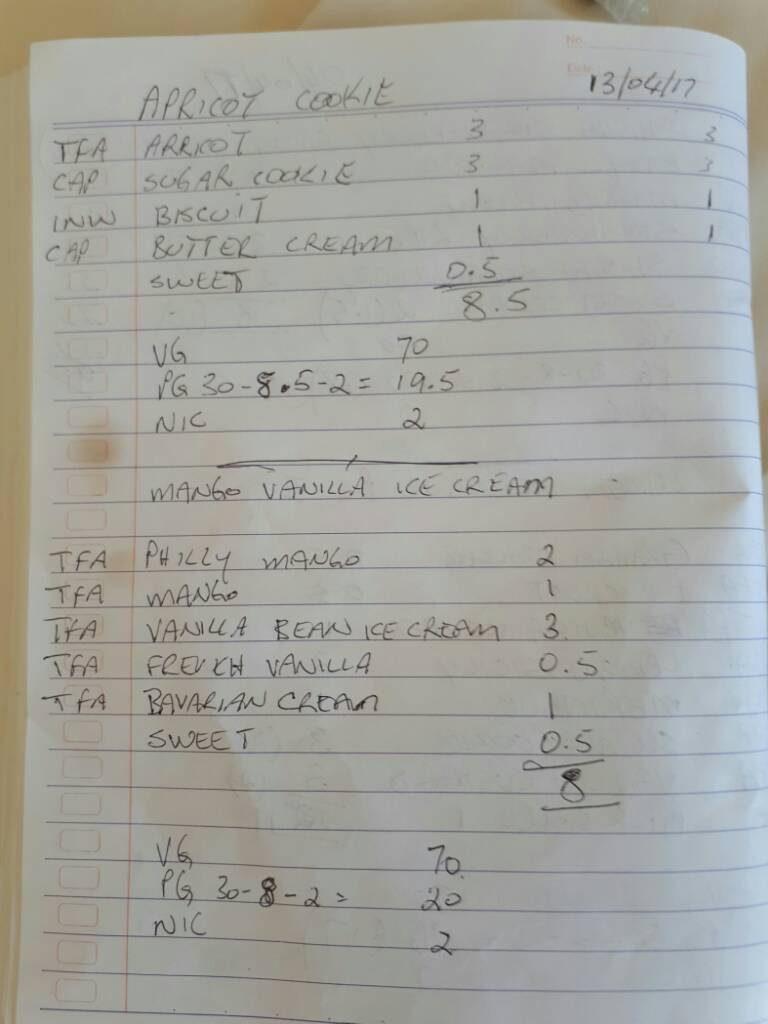 No.
Date
APRICOT COOKIE 13/04/17
TFA ARRICOT 3 3
CAP SUGAR COOKIE 3 3
INW BISCUIT 1 1
CAP BUTTER CREAM 1 1
SWEET 0.5
8.5
VG 70
PG 30-8.5-2 = 19.5
NIC 2
MANGO VANILLA ICE CREAM
TFA PHILLY MANGO 2
TFA MANGO 1
TFA VANILLA BEAN ICE CREAM 3
TFA FRENCH VANILLA 0.5
TFA BAVARIAN CREAM 1
SWEET 0.5
8
VG 70
PG 30-8-2 = 20
NIC 2